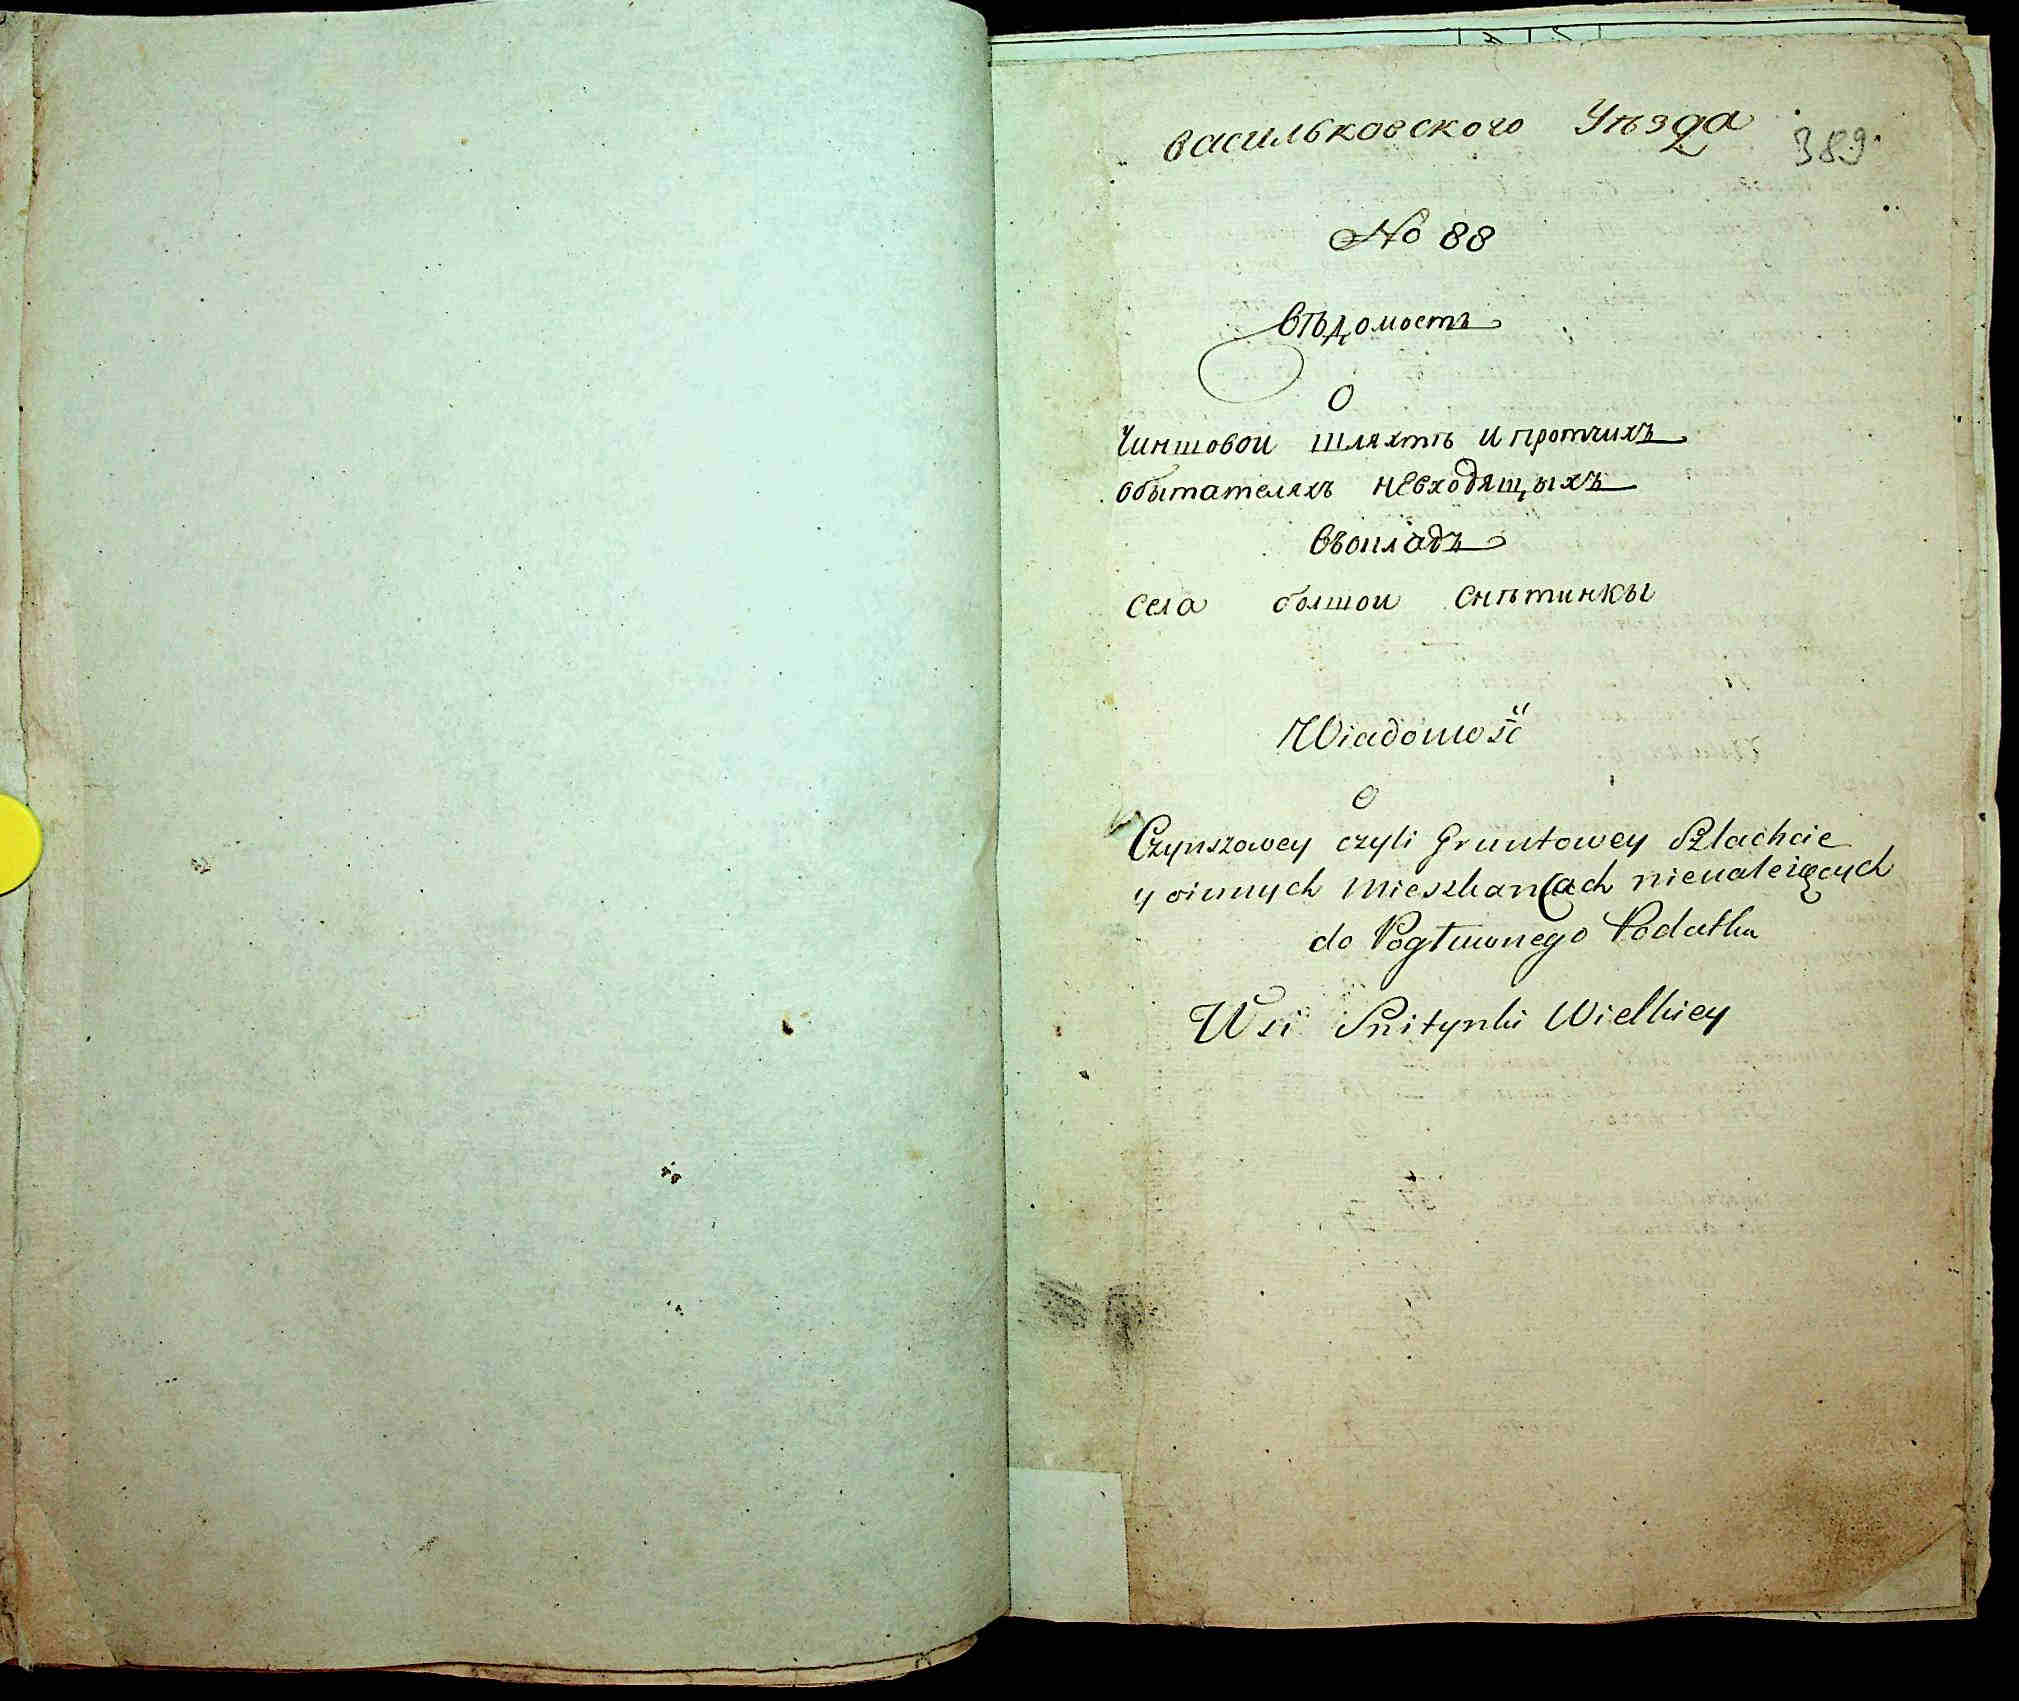 васильковского Уѣзда
389.
No 88
вѣдомость
О
Чиншовои шляхтѣ и протчихъ
обытателяхъ невходящыхъ
въокладъ
села болшои снѣтинкы
Wiadomość
o
Czynszowey czyli Gruntowey Szlachcie
y oinnych Mieszkancach nienależących
do Pogłownego Podatku
Wsi Snitynki Wielkiey